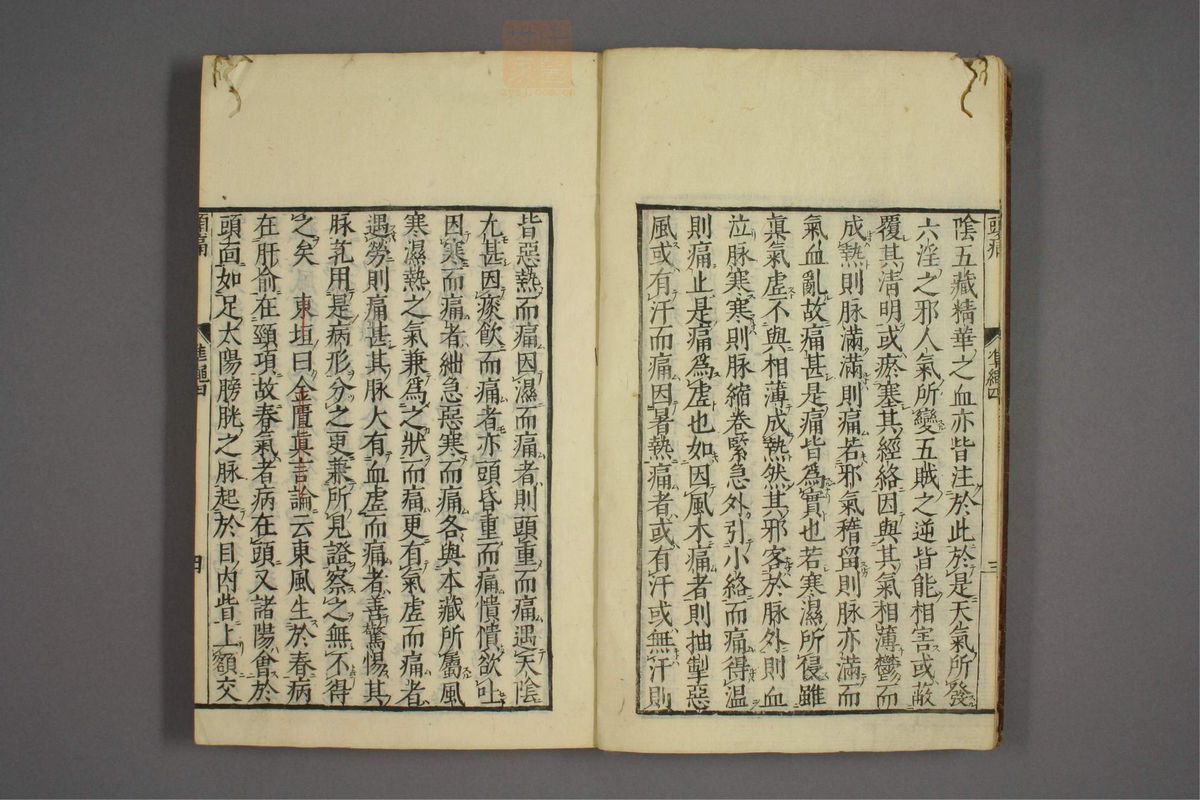 頭痛
準繩四
三
陰五藏精華之血亦皆注於此於是天氣所發
六淫之邪人氣所變五賊之逆皆能相害或蔽
覆其清明或瘀塞其經絡因與其氣相薄鬱而
成熱則脉滿滿則痛若邪氣稽留則脉亦滿而
氣血亂故痛甚是痛皆爲實也若寒濕所侵雖
眞氣虛不與相薄成熱然其邪客於脉外則血
泣脉寒寒則脉縮卷緊急外引小絡而痛得温
則痛止是痛爲虛也如因風木痛者則抽掣惡
風或有汗而痛因暑熱痛者或有汗或無汗則
皆惡熱而痛因濕而痛者則頭重而痛遇天陰
尤甚因痰飲而痛者亦頭昏重而痛憒憒欲吐
因寒而痛者絀急惡寒而痛各與本藏所屬風
寒濕熱之氣兼爲之狀而痛更有氣虛而痛者
遇勞則痛甚其脉大有血虛而痛者善驚惕其
脉芤用是病形分之更兼所見證察之無不得
之矣 東垣曰金匱眞言論云東風生於春病
在肝俞在頸項故春氣者病在頭又諸陽會於
頭面如足太陽膀胱之脉起於目内眥上額交
頭痛
準繩四
四